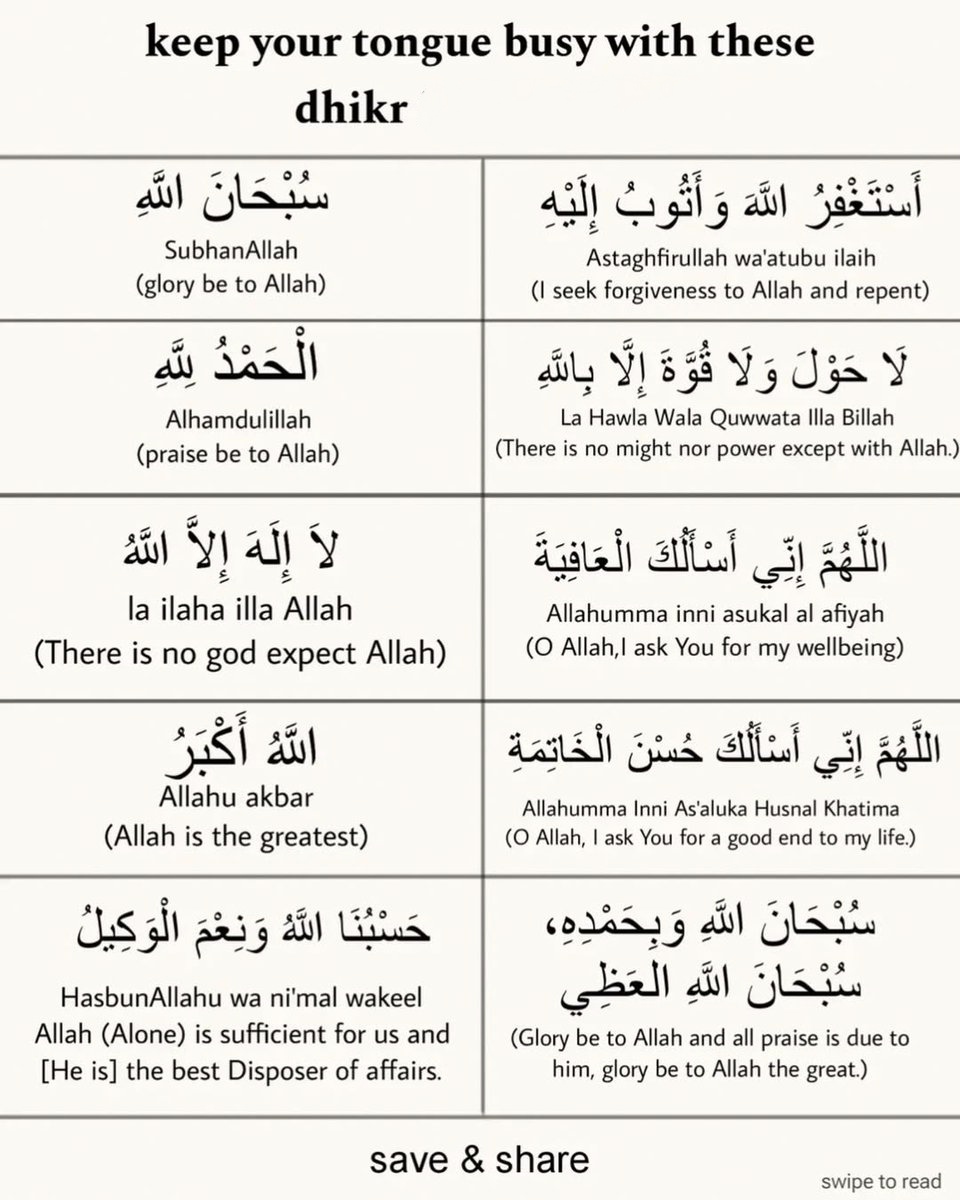 keep your tongue busy with these
dhikr
سُبْحَانَ اللَّهِ
SubhanAllah
(glory be to Allah)
أَسْتَغْفِرُ اللَّهَ وَأَتُوبُ إِلَيْهِ
Astaghfirullah wa'atubu ilaih
(I seek forgiveness to Allah and repent)
الْحَمْدُ لِلَّهِ
Alhamdulillah
(praise be to Allah)
لَا حَوْلَ وَلَا قُوَّةَ إِلَّا بِاللَّهِ
La Hawla Wala Quwwata Illa Billah
(There is no might nor power except with Allah.)
لاَ إِلَهَ إِلاَّ اللَّهُ
la ilaha illa Allah
(There is no god expect Allah)
اللَّهُمَّ إِنِّي أَسْأَلُكَ الْعَافِيَةَ
Allahumma inni asukal al afiyah
(O Allah,I ask You for my wellbeing)
اللَّهُ أَكْبَرُ
Allahu akbar
(Allah is the greatest)
اللَّهُمَّ إِنِّي أَسْأَلُكَ حُسْنَ الْخَاتِمَةِ
Allahumma Inni As'aluka Husnal Khatima
(O Allah, I ask You for a good end to my life.)
حَسْبُنَا اللَّهُ وَنِعْمَ الْوَكِيلُ
HasbunAllahu wa ni'mal wakeel
Allah (Alone) is sufficient for us and
[He is] the best Disposer of affairs.
سُبْحَانَ اللَّهِ وَبِحَمْدِهِ،
سُبْحَانَ اللَّهِ العَظِي
(Glory be to Allah and all praise is due to
him, glory be to Allah the great.)
save & share
swipe to read